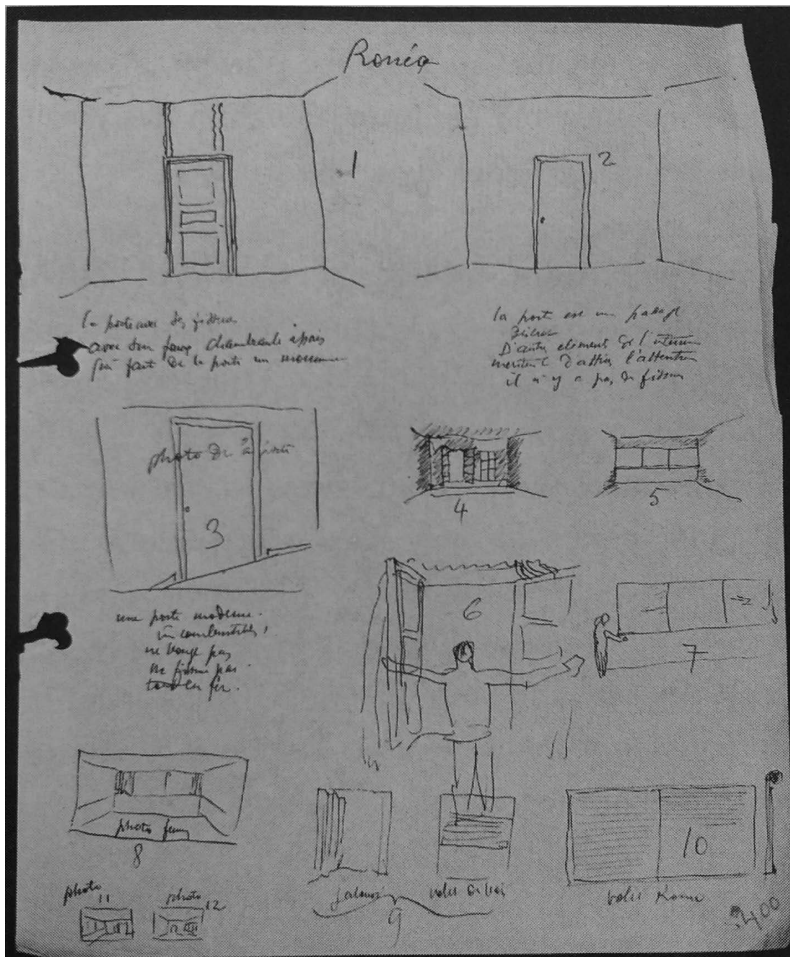 Ronéo
1
2
la porte avec des fissures
avec son faux chambranle épais
qui fait de la porte un monument
la porte est un passage
D'autres element de l'interieur
meritent d'attirer l'attention
il n'y a pas de fissure
photo de
3
4
5
une porte moderne.
incombustible!
ne bouge pas
ne fissure pas
tout en fer.
6
7
photo
8
photo
11
photo
12
jalousie
volet en bois
9
10
volet Roneo
2400